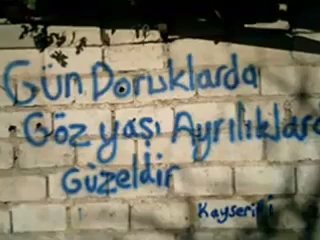 Gün Doruklarda
Göz yaşı Ayrılıklard
Güzeldir
Kayserili